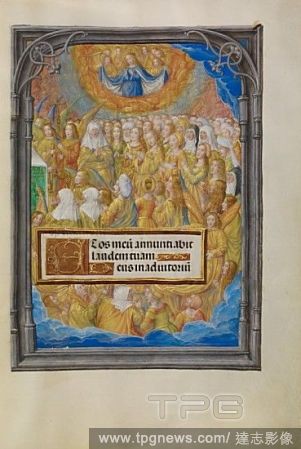 Et os meū annuntiabit
laudem tuam
eus in adiutoriū
TPG
www.tpgnews.com/達志影像